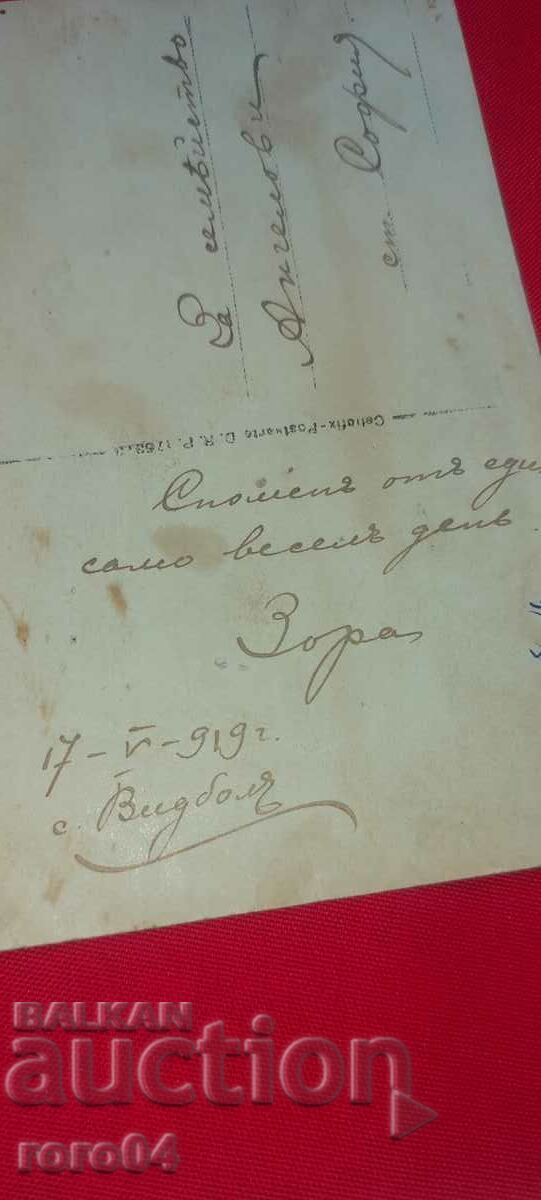 За семейство
Ангелови
ст. София
Cellofix-Postkarte D. R. P.
Споменъ отъ еди
само веселъ день.
Зора
17-V-919г.
с. Видболъ
BALKAN
auction
roro04